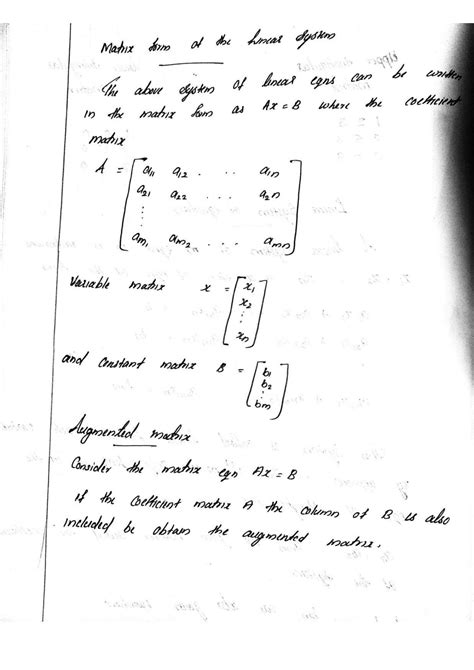 Matrix form of the linear system
The above system of linear eqns can be written
in the matrix form as Ax = B where the coefficient
matrix
A = [ a11 a12 . . . a1n
a21 a22 . . . . a2n
⋮
am1 am2 . . . amn ]
Variable matrix x = [ x1
x2
⋮
xn ]
and constant matrix B = [ b1
b2
⋮
bm ]
Augmented matrix
Consider the matrix eqn Ax = B
if the coefficient matrix A the column of B is also
included be obtain the augmented matrix.